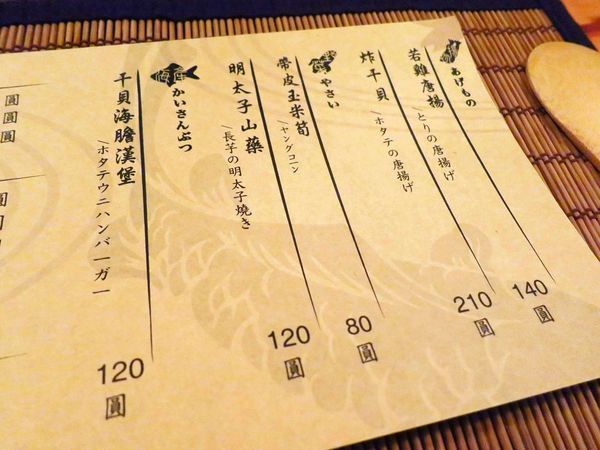 あげもの
若雞唐揚
\とりの唐揚げ
140
圓
炸干貝
\ホタテの唐揚げ
210
圓
野菜
やさい
帶皮玉米筍
\ヤングコーン
80
圓
明太子山藥
\長芋の明太子焼き
120
圓
海産
かいさんぶつ
干貝海膽漢堡
\ホタテウニハンバーガー
120
圓
圓
圓
圓